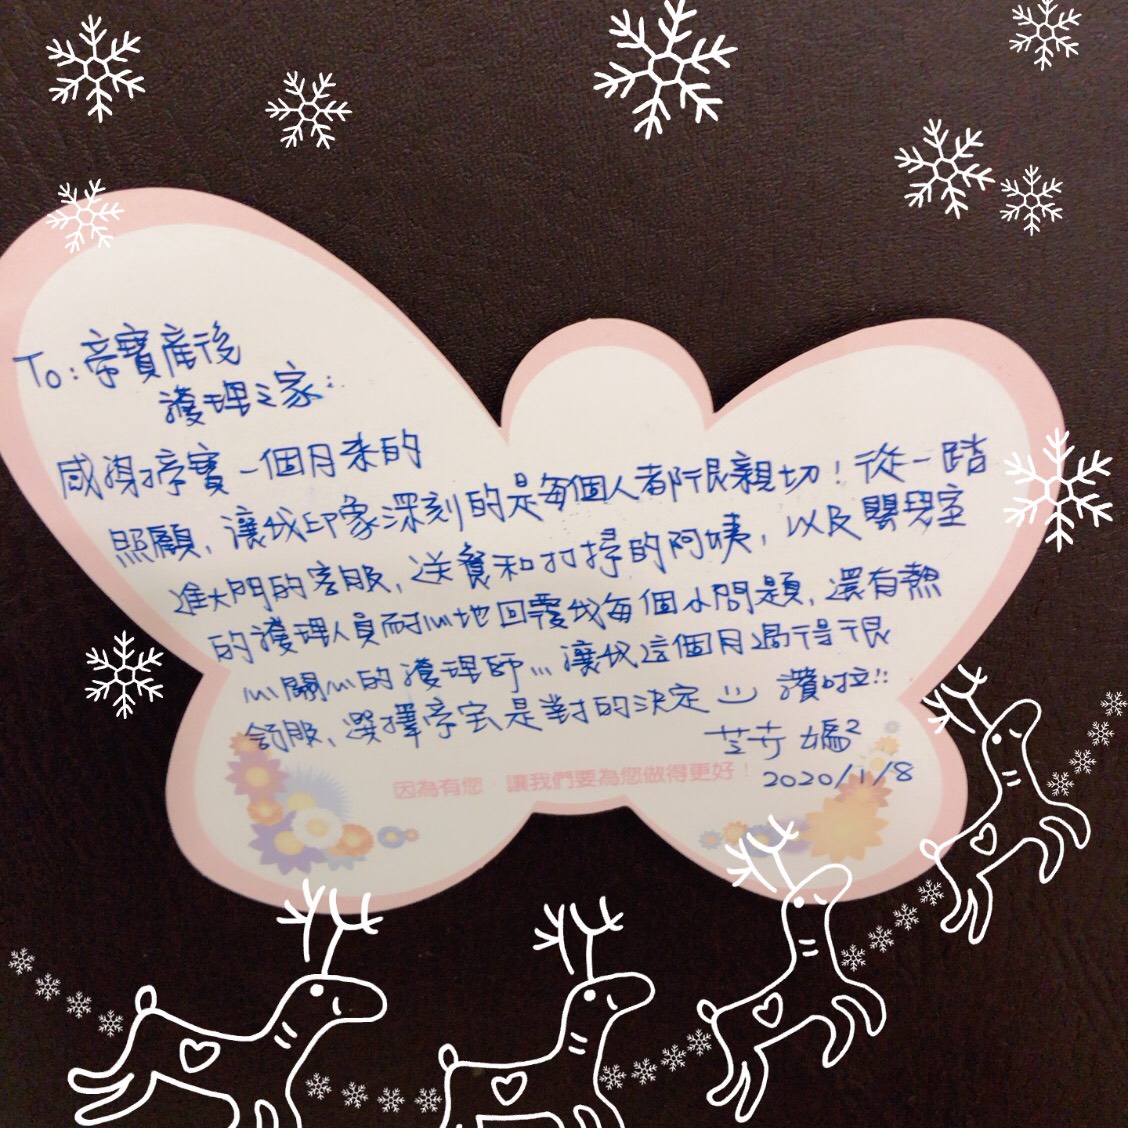 To: 帝寶產後
護理之家:
感謝帝寶一個月來的
照顧,讓我印象深刻的是每個人都很親切!從一踏
進大門的客服,送餐和打掃的阿姨,以及嬰兒室
的護理人員耐心地回覆我每個小問題,還有熱
心關心的護理師...讓我這個月過得很
舒服,選擇帝宝是對的決定 讚啦!!
媽2
因為有您,讓我們要為您做得更好!
2020/1/8